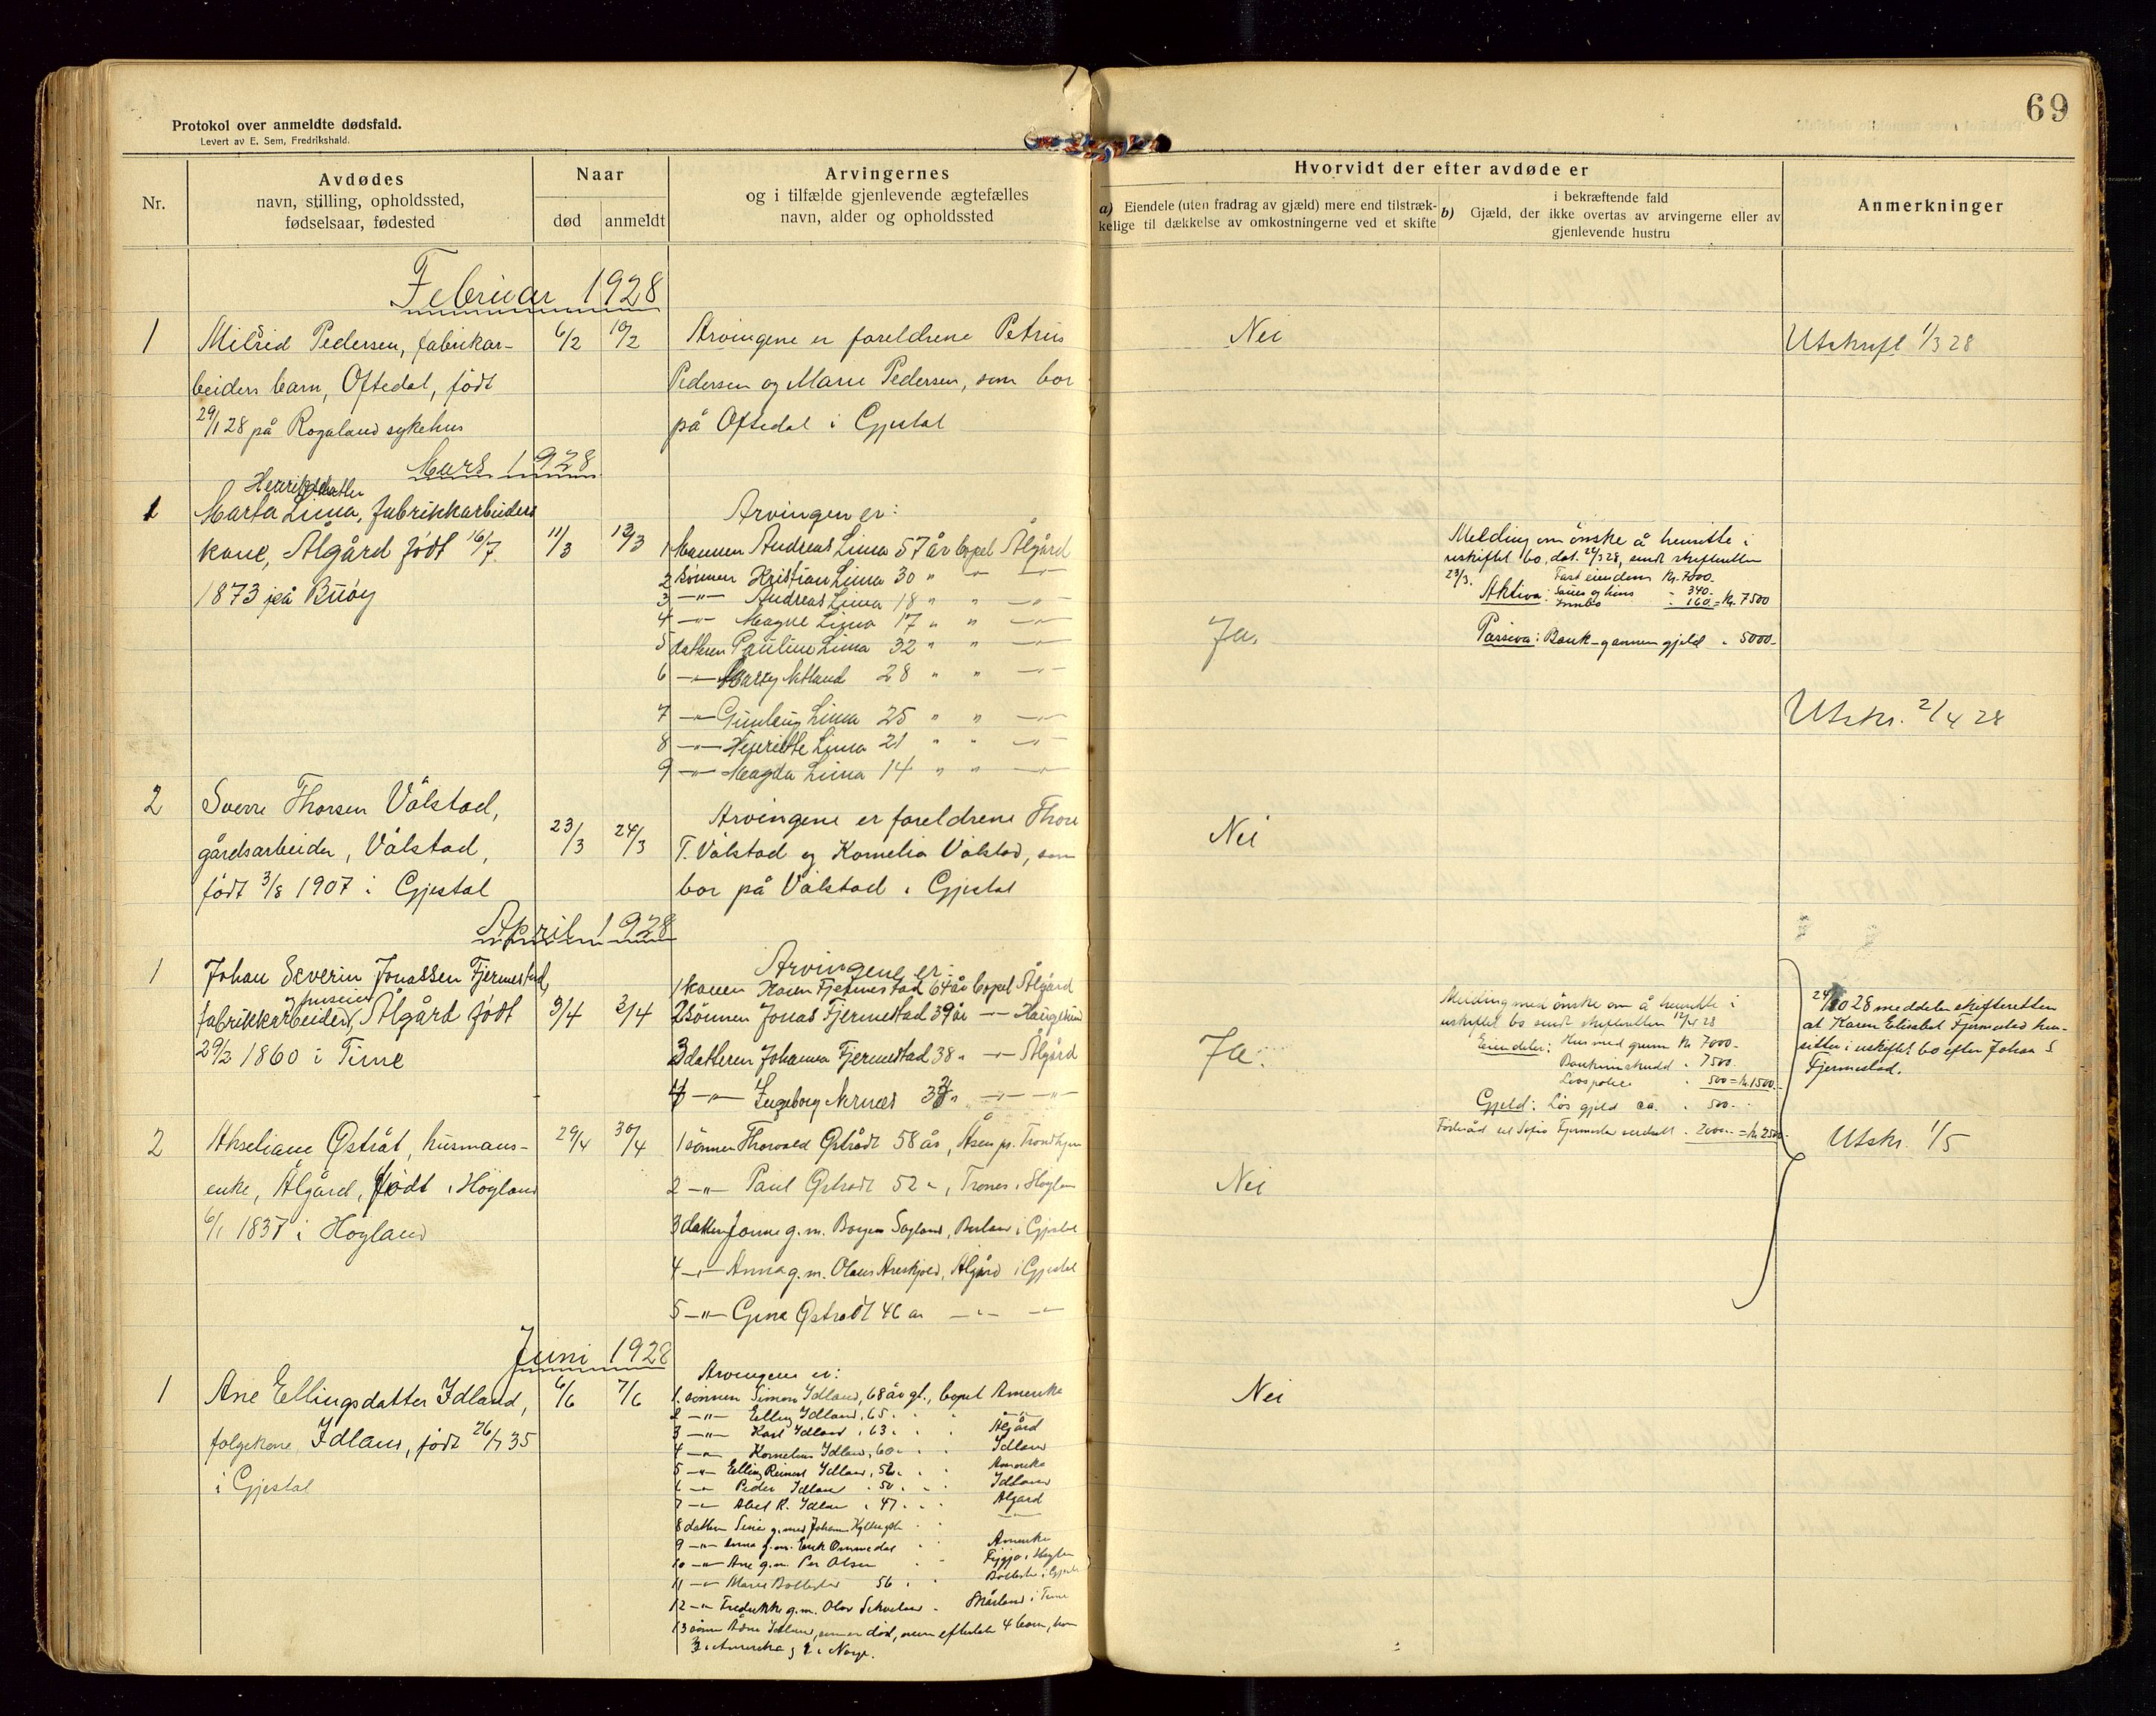 69
Protokol over anmeldte dødsfald.
Levert av E. Sem, Fredrikshald.
Nr.
Avdødes
navn, stilling, opholdssted,
fødselsaar, fødested
Naar
død
anmeldt
Arvingernes
og i tilfælde gjenlevende ægtefælles
navn, alder og opholdssted
Hvorvidt der efter avdøde er
a) Eiendele (uten fradrag av gjæld) mere end tilstræk-
kelige til dækkelse av omkostningerne ved et skifte
i bekræftende fald
b) Gjæld, der ikke overtas av arvingerne eller av
gjenlevende hustru
Anmerkninger
Februar 1928
1
Milrid Pedersen, fabrikar-
beiders barn, Oftedal, født
29/1 28 på Rogaland sykehus
6/2
10/2
Arvingene er foreldrene Petrus
Pedersen og Marie Pedersen, som bor
på Oftedal i Gjestal
Nei
Utskrift 1/3 28
Mars 1928
1
Henriksdatter
Marta Lima, fabrikkarbeiders
kone, Ålgård født 16/7
1873 på Buøy
11/3
13/3
Arvingen er:
1 Mannen Andreas Lima 57 år bopel Ålgård
2 sønnen Kristian Lima 30 " " —"—
3 —"— Andreas Lima 18 " " —"—
4 —"— Magne Lima 17 " " —"—
5 datteren Pauline Lima 32 " " —"—
6 —"— Netland 28 " " —"—
7 —"— Gunlaug Lima 25 " " —"—
8 —"— Henriette Lima 21 " " —"—
9 —"— Magda Lima 14 " " —"—
Ja.
Melding om ønske å hensitte i
uskiftet bo, dat. 22/3 28, sendt skifteretten
23/3. Fast eiendom Kr. 7000.-
Aktiva: Sauer og høns " 340.-
Innbo " 160.- = Kr. 7500
Passiva: Bank- gjeld " 5000.-
Utskr. 2/4 28
2
Sverre Thorsen Válstad,
gårdsarbeider, Válstad,
født 3/8 1907 i Gjestal
23/3
24/3
Arvingene er foreldrene Thore
T. Válstad og Kornelia Válstad, som
bor på Válstad i Gjestal
Nei
April 1928
1
Johan Severin Jonassen Fjermestad,
fabrikkarbeider, Ålgård født
29/2 1860 i Time
3/4
3/4
Arvingene er:
1 konen Karen Fjermestad 64 år bopel Ålgård
2 sønnen Jonas Fjermestad 39 år —"— Haugesund
3 datteren Johanna Fjermestad 38 " —"— Ålgård
4 —"— Ingeborg —"— —"—
Ja.
Melding med ønske om å hensitte i
uskiftet bo sendt skifteretten 12/4 28
Eiendeler: Hus med grunn Kr 7000.-
Bankinnskudd " 7500.-
Livspolice " 500
Gjeld: Løs gjeld ca. " 500.-
24/10 28 meddeler skifteretten
at Karen Elisabet Fjermestad hen-
sitter i uskiftet bo efter Johan S.
Fjermestad.
2
Akseliane Østråt, husmans-
enke, Ålgård, født i Høyland
6/1 1837 i Høyland
29/4
30/4
1 sønnen Thorvald Østrådt 58 år, Åsen pr. Trondhjem
2 —"— Paul Østrådt 52 ", Trones i Høyland
3 datteren g. m. i Gjestal
4 —"— Anna g. m. Olaus Areskjold, Ålgård i Gjestal
5 —"— Gina Østrådt 46 år —"— —"—
Nei
Utskr. 1/5
Juni 1928
1
Ane Ellingsdatter Idland,
følgekone, Idland, født 26/7 35
i Gjestal
6/6
7/6
Arvingene er:
1. sønnen Simon Idland, 68 år gl., bopel Amerika
2 —"— Elling Idland, 65 " " —"—
3 —"— Karl Idland, 63 " " Ålgård
4 —"— Kornelius Idland, 60 " " Idland
5 —"— Elling Reinert Idland, 52 " " Amerika
6 —"— Peder Idland " 50 " " Idland
7 —"— Abel R. Idland " 47 " " Ålgård
8 datteren g. med Johan —"—
9 —"— Anna g. m. Erik Ommedal " Amerika
10 —"— Ane g. m. Per Olsen " Figgjo i Høyland
11 —"— Marie 56 " i Gjestal
12 —"— Fredrikke g. m. Olav i Time
13 sønn Idland, som er død, men efterlot 4 barn,
i Amerika og i Norge.
Nei